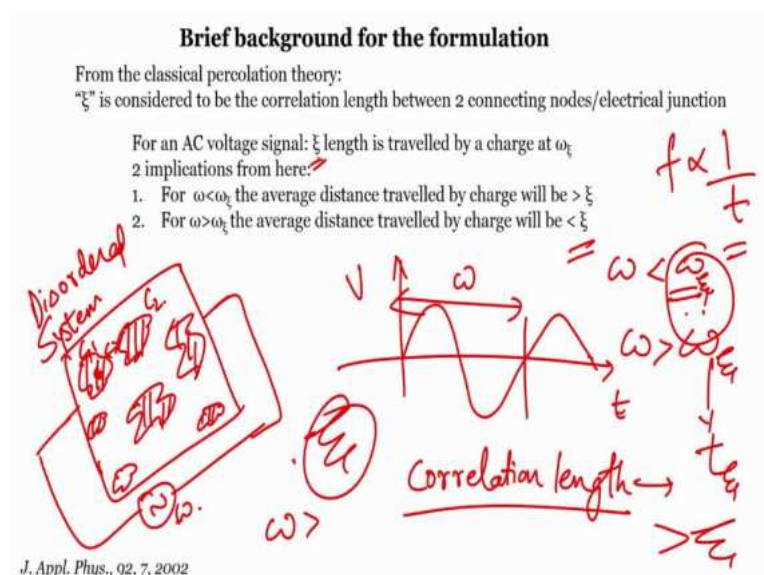 Brief background for the formulation
From the classical percolation theory:
“ξ” is considered to be the correlation length between 2 connecting nodes/electrical junction
For an AC voltage signal: ξ length is travelled by a charge at ωξ
2 implications from here:
1. For ω<ωξ the average distance travelled by charge will be > ξ
2. For ω>ωξ the average distance travelled by charge will be < ξ
f ∝ 1/t
Disordered
System
C2
V
ω
t
ω < ωξ
ω > ωξ
tξ
ξ
Correlation length →
> ξ
ω.
ω >
J. Appl. Phys., 92, 7, 2002